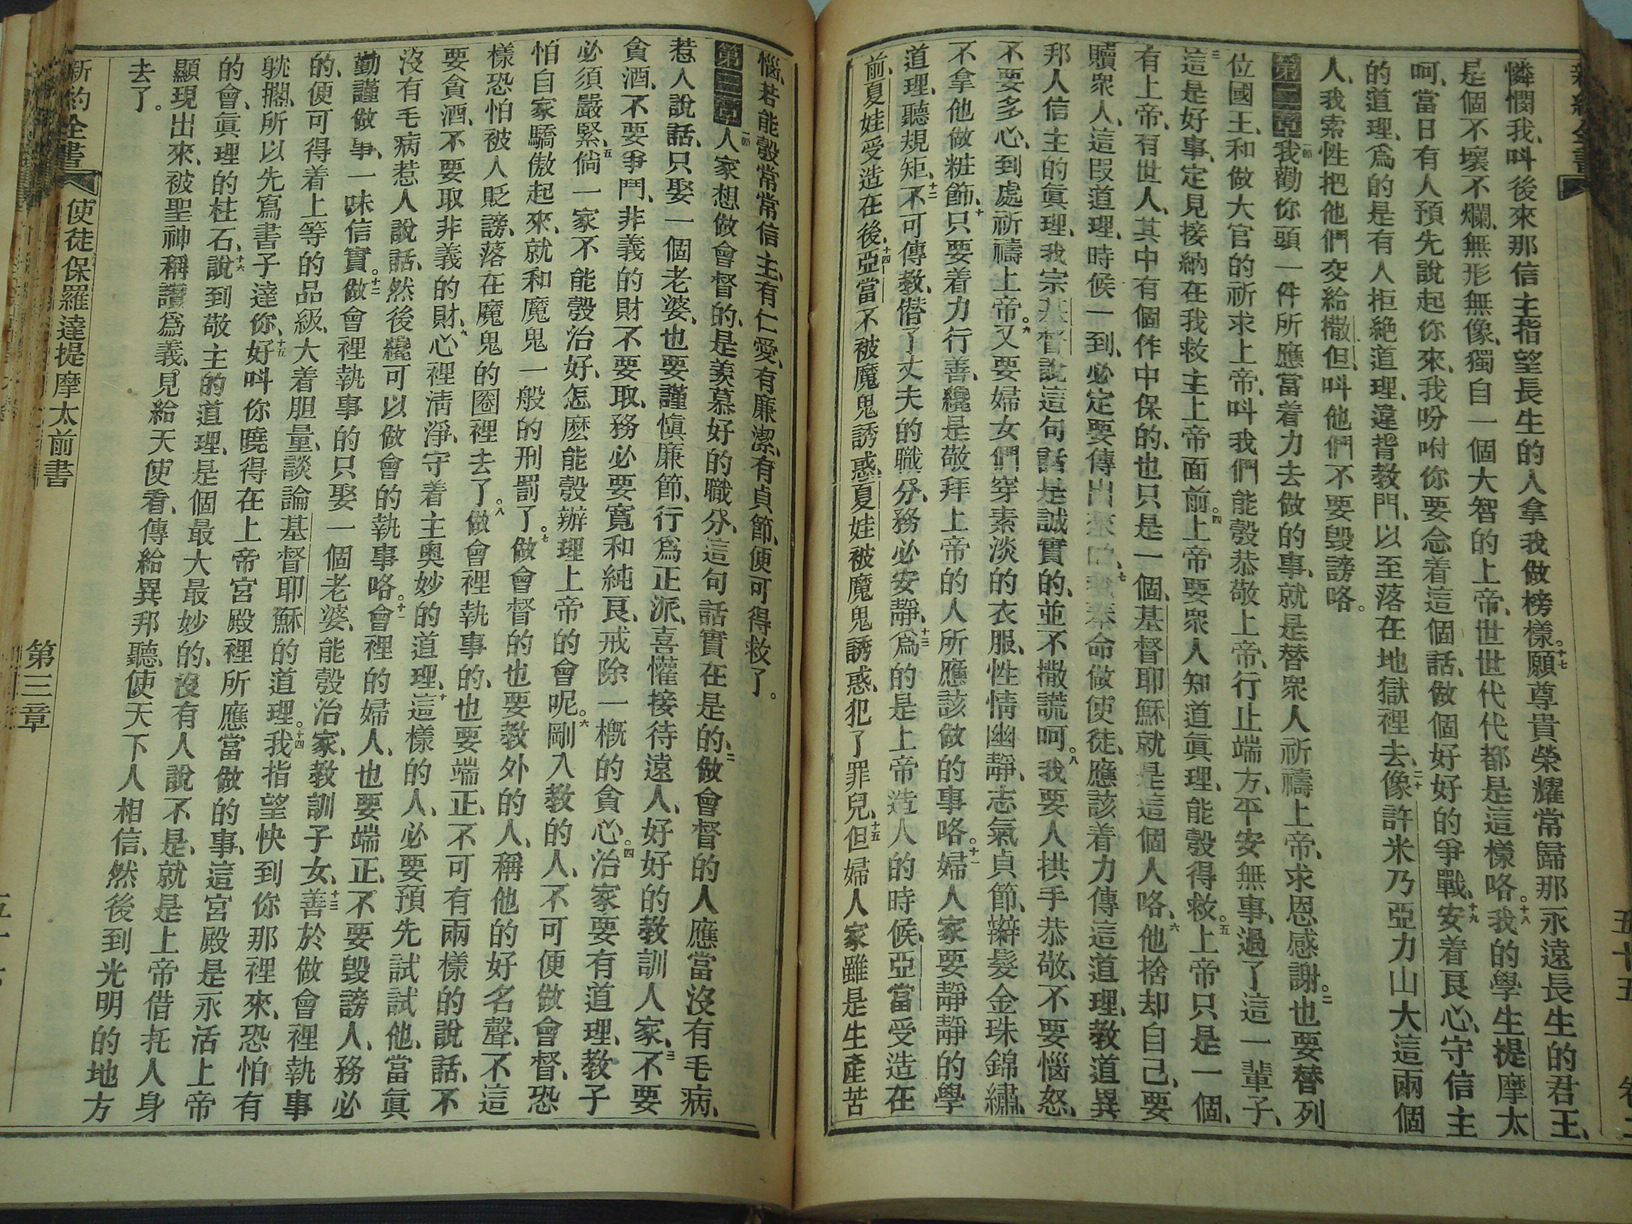 憐憫我、呌後來那信主指望長生的人拿我做榜樣。十七願尊貴榮耀常歸那永遠長生的君王、
是個不壞不爛、無形無像、獨自一個大智的上帝、世世代代都是這樣咯。十八我的學生提摩太
呵、當日有人預先說起你來、我吩咐你要念着這個話、做個好好的爭戰、十九安着良心、守信主
的道理、爲的是有人拒絶道理、違背教門、以至落在地獄裡去、二十像許米乃亞力山大這兩個
人、我索性把他們交給撒但、呌他們不要毀謗咯。
第二章一節我勸你頭一件所應當着力去做的事、就是替衆人祈禱上帝、求恩感謝。二也要替列
位國王、和做大官的祈求上帝、呌我們能彀恭敬上帝、行止端方、平安無事、過了這一輩子、
三這是好事、定見接納在我救主上帝面前。四上帝要衆人知道眞理、能彀得救。五上帝只是一個、
有上帝、有世人、其中有個作中保的、也只是一個、基督耶穌就是這個人咯、六他捨却自己、要
贖衆人、這叚道理、時候一到、必定要傳出來的、七我奉命做使徒、應該着力傳這道理、教道異
邦人信主的眞理、我宗基督說這句話是誠實的、並不撒謊呵。八我要人拱手恭敬、不要惱怒、
不要多心、到處祈禱上帝。九又要婦女們穿素淡的衣服、性情幽靜、志氣貞節、辮髮金珠錦繡、
不拿他做粧飾、十只要着力行善、纔是敬拜上帝的人所應該做的事咯。十一婦人家要靜靜的學
道理、聽規矩、十二不可傳教、僭了丈夫的職分、務必安靜、十三爲的是上帝造人的時候、亞當受造在
前、夏娃受造在後、十四亞當不被魔鬼誘惑、夏娃被魔鬼誘惑、犯了罪兒、十五但婦人家雖是生產苦
惱、若能彀常常信主、有仁愛、有廉潔、有貞節、便可得救了。
第三章一節人家想做會督的、是羨慕好的職分、這句話實在是的、二做會督的人應當沒有毛病、
惹人說話、只娶一個老婆、也要謹慎廉節、行爲正派、喜懽接待遠人、好好的教訓人家、三不要
貪酒、不要爭鬥、非義的財不要取、務必要寬和純良、戒除一槪的貪心。四治家要有道理、教子
必須嚴緊、五倘一家不能彀治好、怎麽能彀辦理上帝的會呢。六剛入教的人、不可便做會督、恐
怕自家驕傲起來、就和魔鬼一般的刑罰了。七做會督的也要教外的人、稱他的好名聲、不這
樣恐怕被人貶謗、落在魔鬼的圈裡去了。八做會裡執事的、也要端正、不可有兩樣的說話、不
要貪酒、不要取非義的財、九心裡淸淨、守着主奧妙的道理、十這樣的人、必要預先試試他、當眞
沒有毛病惹人說話、然後纔可以做會的執事咯。十一會裡的婦人、也要端正、不要毀謗人、務必
勤謹做事、一味信實。十二做會裡執事的只娶一個老婆、能彀治家、教訓子女、十三善於做會裡執事
的、便可得着上等的品級、大着胆量、談論基督耶穌的道理。十四我指望快到你那裡來、恐怕有
躭擱、所以先寫書子達你、十五好呌你曉得在上帝宮殿裡所應當做的事、這宮殿是永活上帝
的會、眞理的柱石、十六說到敬主的道理、是個最大最妙的、沒有人說不是、就是上帝借托人身
顯現出來、被聖神稱讚爲義、見給天使看、傳給異邦聽、使天下人相信、然後到光明的地方
去了。
新約全書 使徒保羅達提摩太前書 第三章